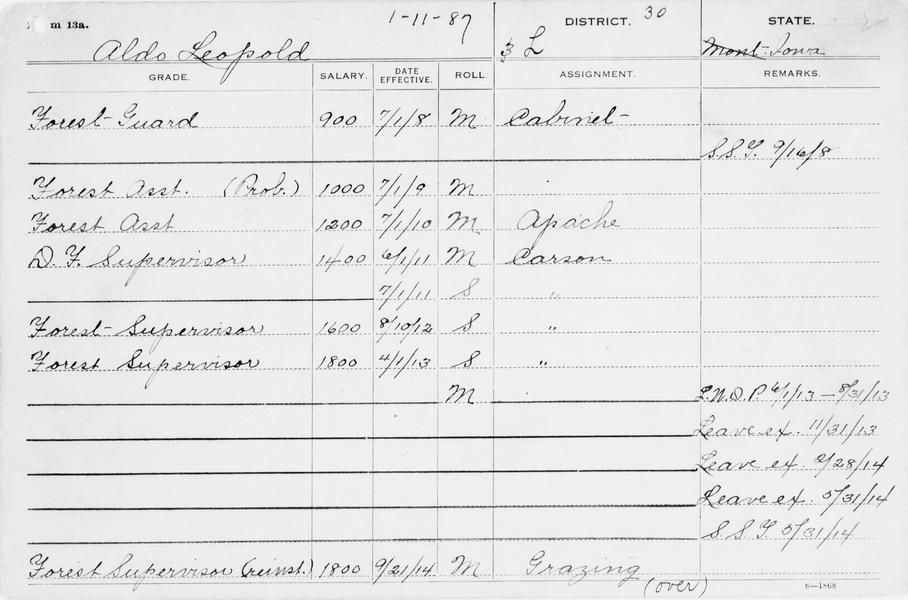 m 13a. 1-11-87 DISTRICT. 30 STATE.
Aldo Leopold 3 L Mont. Iowa
GRADE. SALARY. DATE EFFECTIVE. ROLL. ASSIGNMENT. REMARKS.
Forest Guard 900 7/1/8 M Cabinet
S.S.T. 9/16/8
Forest Asst. (Prob.) 1000 7/1/9 M
Forest Asst 1200 7/1/10 M Apache
D. F. Supervisor 1400 6/1/11 M Carson
7/1/11 S "
Forest Supervisor 1600 8/10/12 S "
Forest Supervisor 1800 4/1/13 S "
M L.W.O.P. 6/1/13 — 8/31/13
Leave ex. 11/31/13
Leave ex. 2/28/14
Leave ex. 5/31/14
S.S.T. 5/31/14
Forest Supervisor (reinst.) 1800 9/21/14 M Grazing
(over) 8—1868